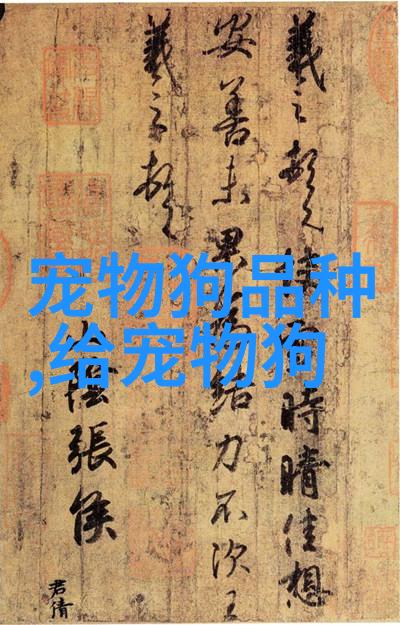 羲之頓首時晴佳想
安善未果結力不次王
羲之頓首
陰張侯
君倩
宠物狗品种
,给宠物狗